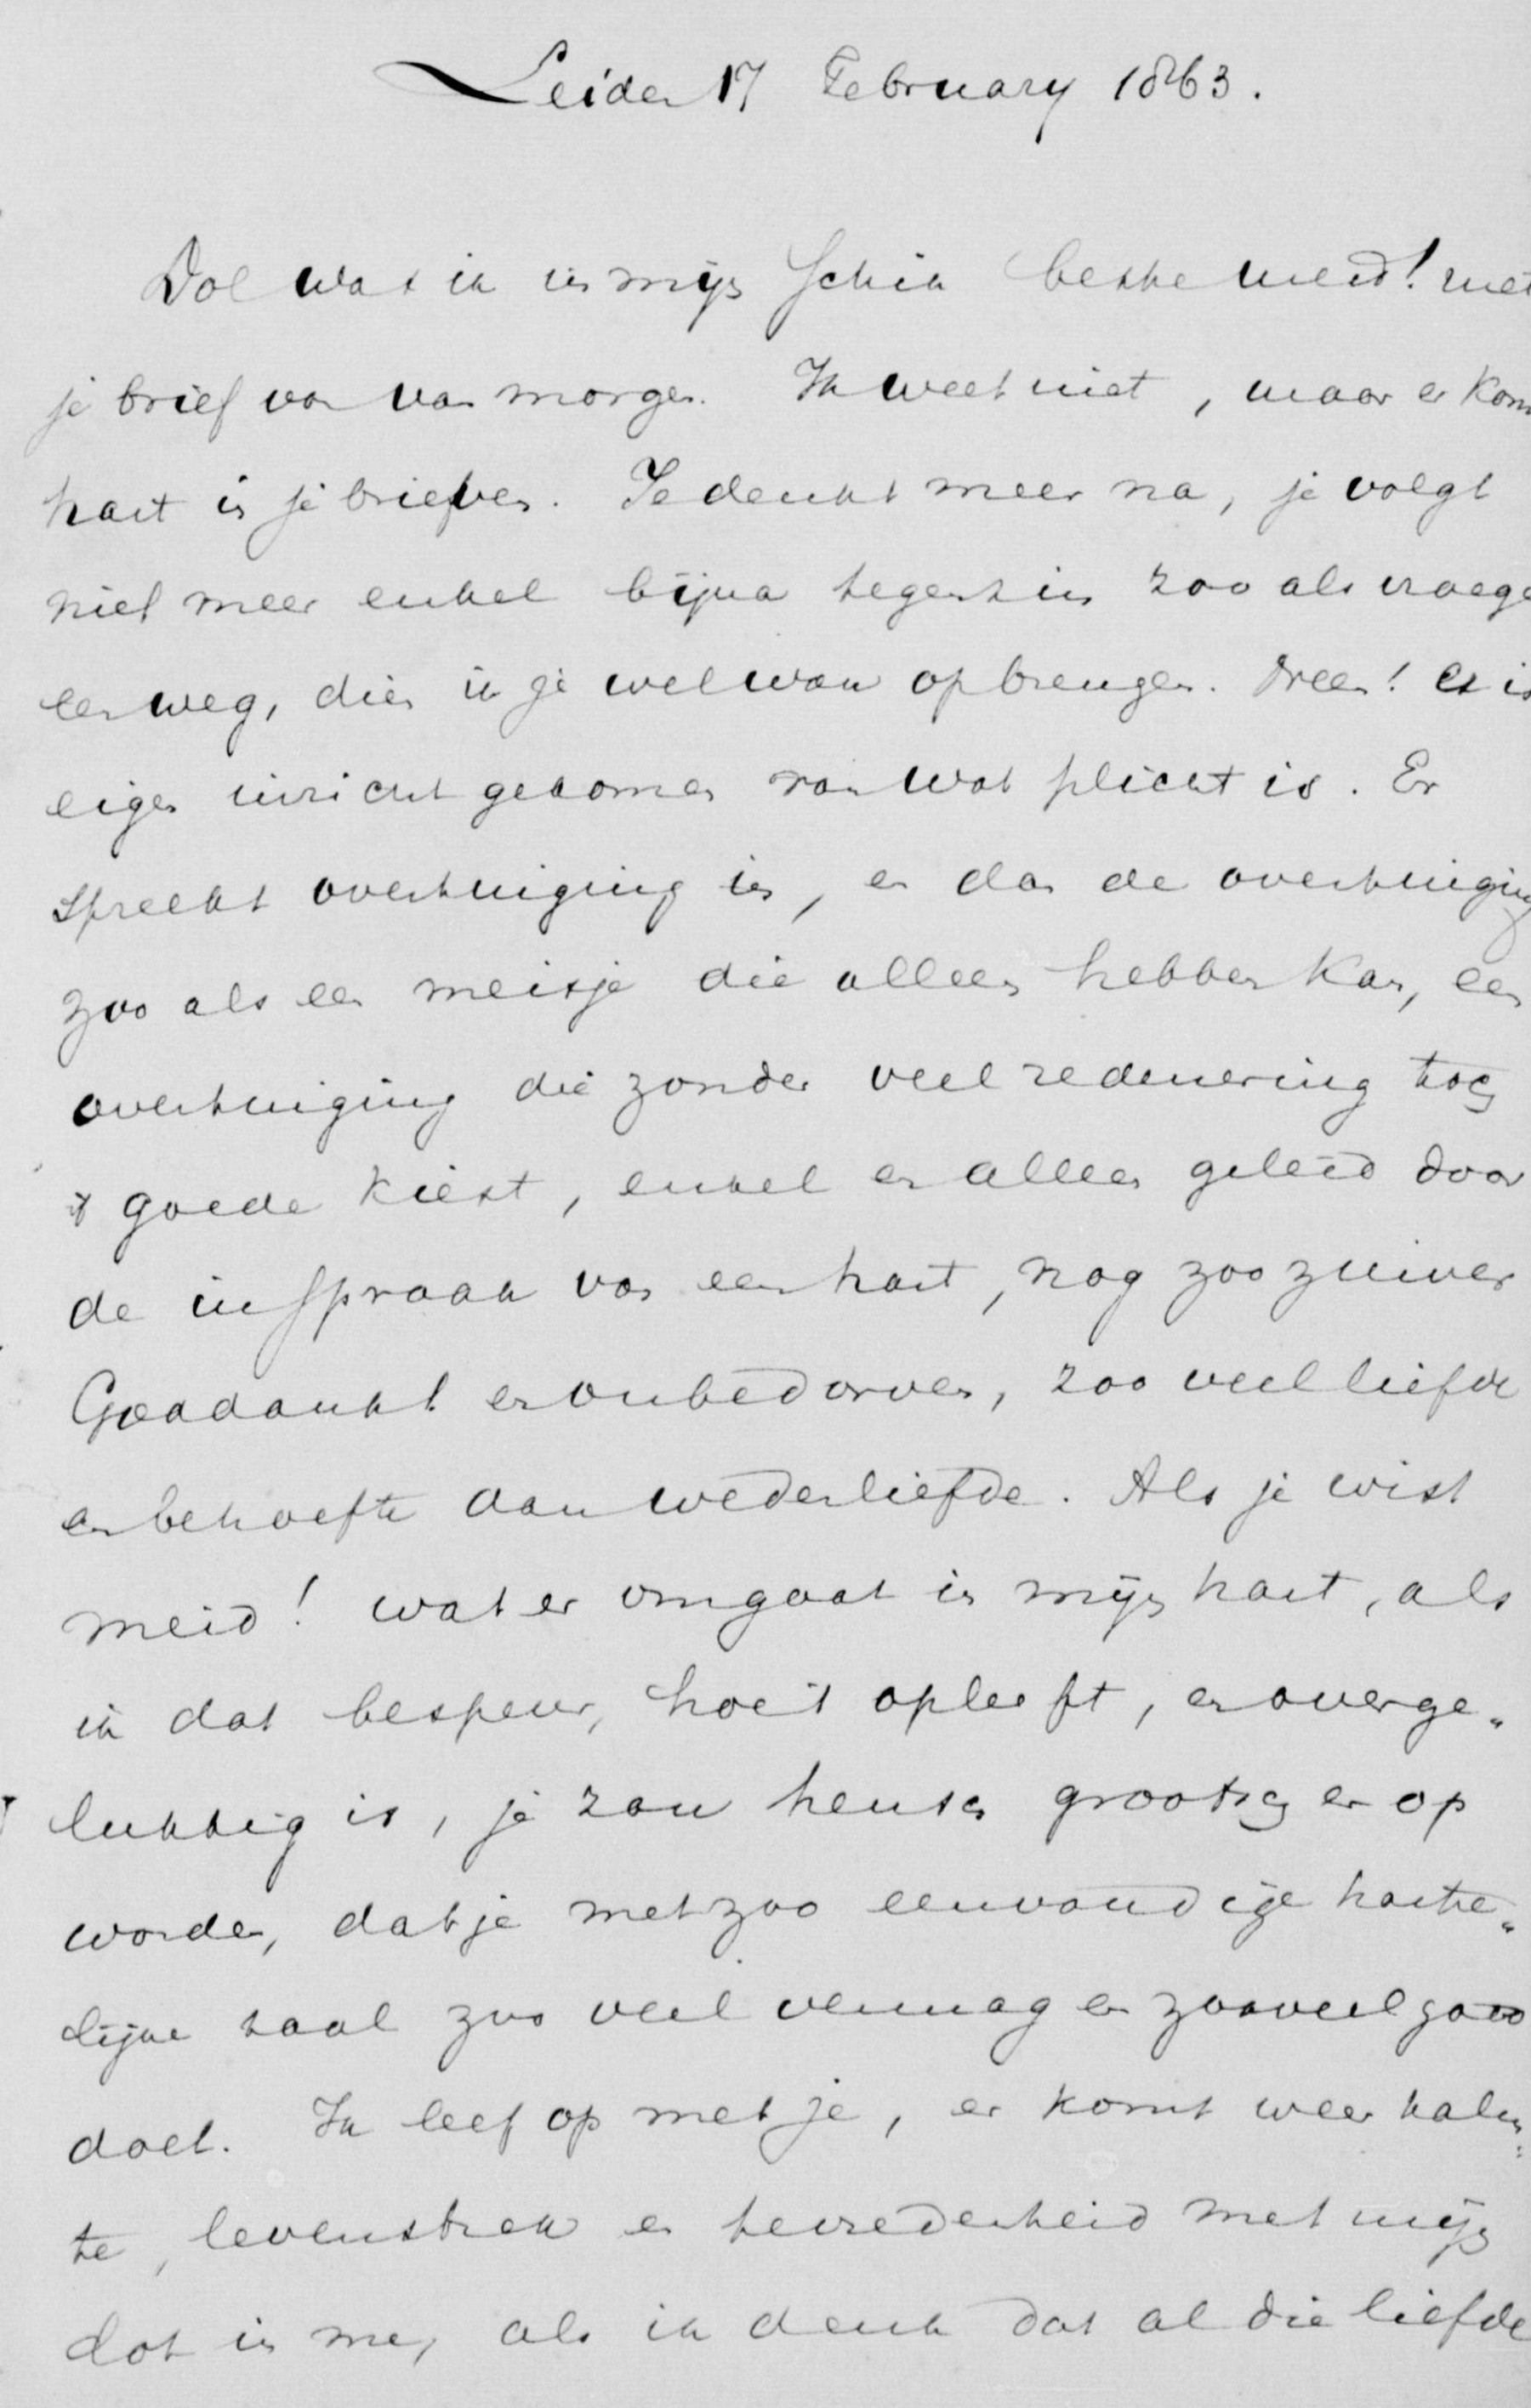 Leiden 17 February 1863.
Dol was ik in mijn schik beste meid! met
je brief van van morgen. Ik weet niet, maar er kom
hart in je brieven. Je denkt meer na, je volgt
niet meer enkel bijna tegenzin zoo als vroege
een weg, dien ik je wel wou opbrengen. Neen! er is
eigen inzicht gekomen van wat plicht is. Er
spreekt overtuiging in, en dan de overtuiging
zoo als een meisje die alleen hebben kan, een
overtuiging die zonder veel redenering toch
't goede kiest, enkel en alleen geleid door
de inspraak van een hart, nog zoo zuiver
Goddankt en onbedorven, zoo veel liefde
en behoefte aan wederliefde. Als je wist
meid! wat er omgaat in mijn hart, als
ik dat bespeur, hoe 't opleeft, en overge„
lukkig is, je zou heusch grootsch er op
worden, dat je met zoo eenvoudige harte„
lijke taal zoo veel vermag en zooveel goed
doet. Ik leef op met je, er komt weer kalm„
te, levenstrek en tevredenheid met mijn
lot in me, als ik denk dat al die liefde